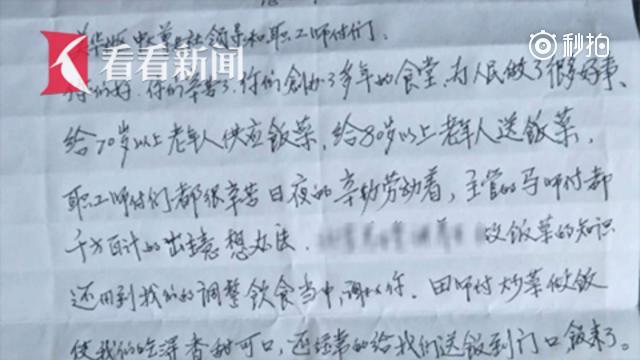 领导和职工师付们、
看看新闻
秒拍
你们好、你们辛苦了、你们创办了多年的食堂、为人民做了很多好事、
给70岁以上老年人供应饭菜，给80岁以上老年人送饭菜，
职工师付们都很辛苦日夜的辛勤劳动着，主管的马师付都
千方百计的出主意想办法. 饭菜的知识
还用到我们的调整饮食当中，谢谢你. 田师付炒菜做饭
使我们吃得香甜可口，还经常的给我们送饭到门口饭来了。